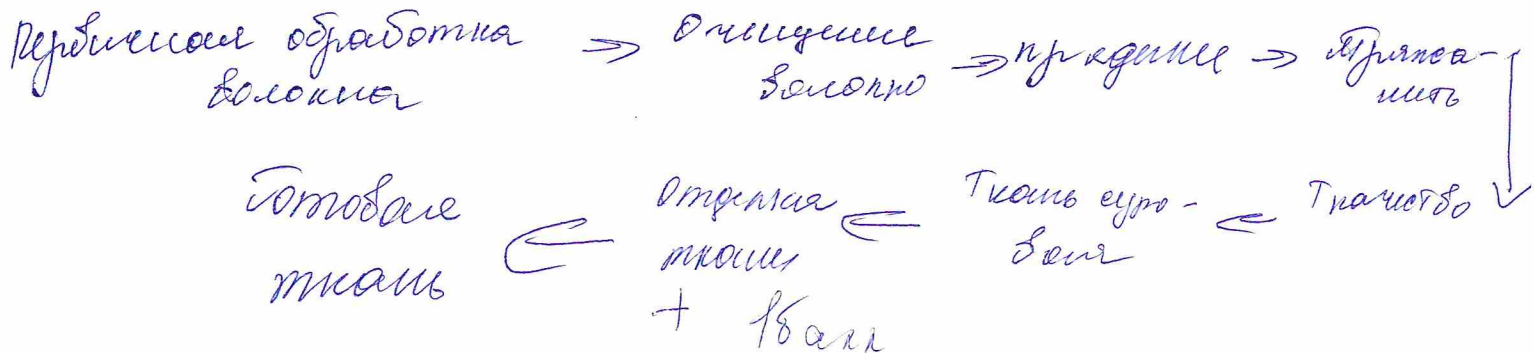 Первичная обработка волокна => Очищение волокно => прядение => Пряжа-нить
Ткачество <= Ткань суровая <= Отделка ткани <= Готовая ткань
+ 1балл